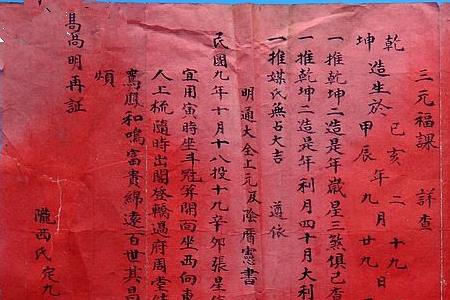 三元福課　詳查
乾 己亥 二 十九
造生於 年 月 日
坤 甲辰 九 廿九
一推乾坤二造是年歲星三煞俱已查
一推乾坤二造是年利月四十月大利
一推媒氏無占大吉　遵依
明通大全上元及陰曆憲書
民國九年十月十八投十九辛卯張星
宜用寅時坐斗冠笄開面坐西向東
人上梳隨時出閣登轎過府周堂
鸞鳳和鳴富貴綿遠百世其昌
頌
隴西氏定九
高明再証